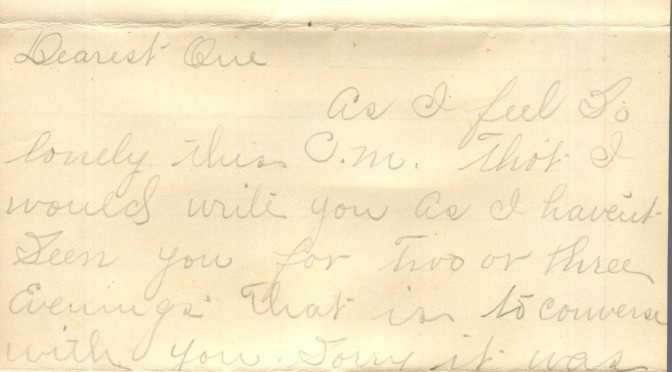 Dearest One
As I feel So
lonely this P.m. Thot I
would write you as I havent
Seen you for two or three
Evenings that is to converse
with you. Sorry it was